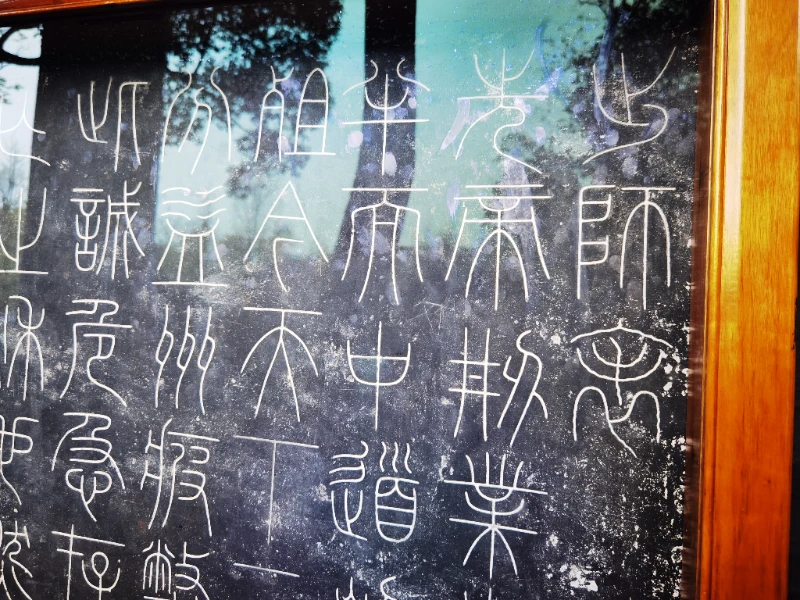 出師表
先帝刱業
半而中道
殂今天下
分益州疲敝
此誠危急存
之秋也